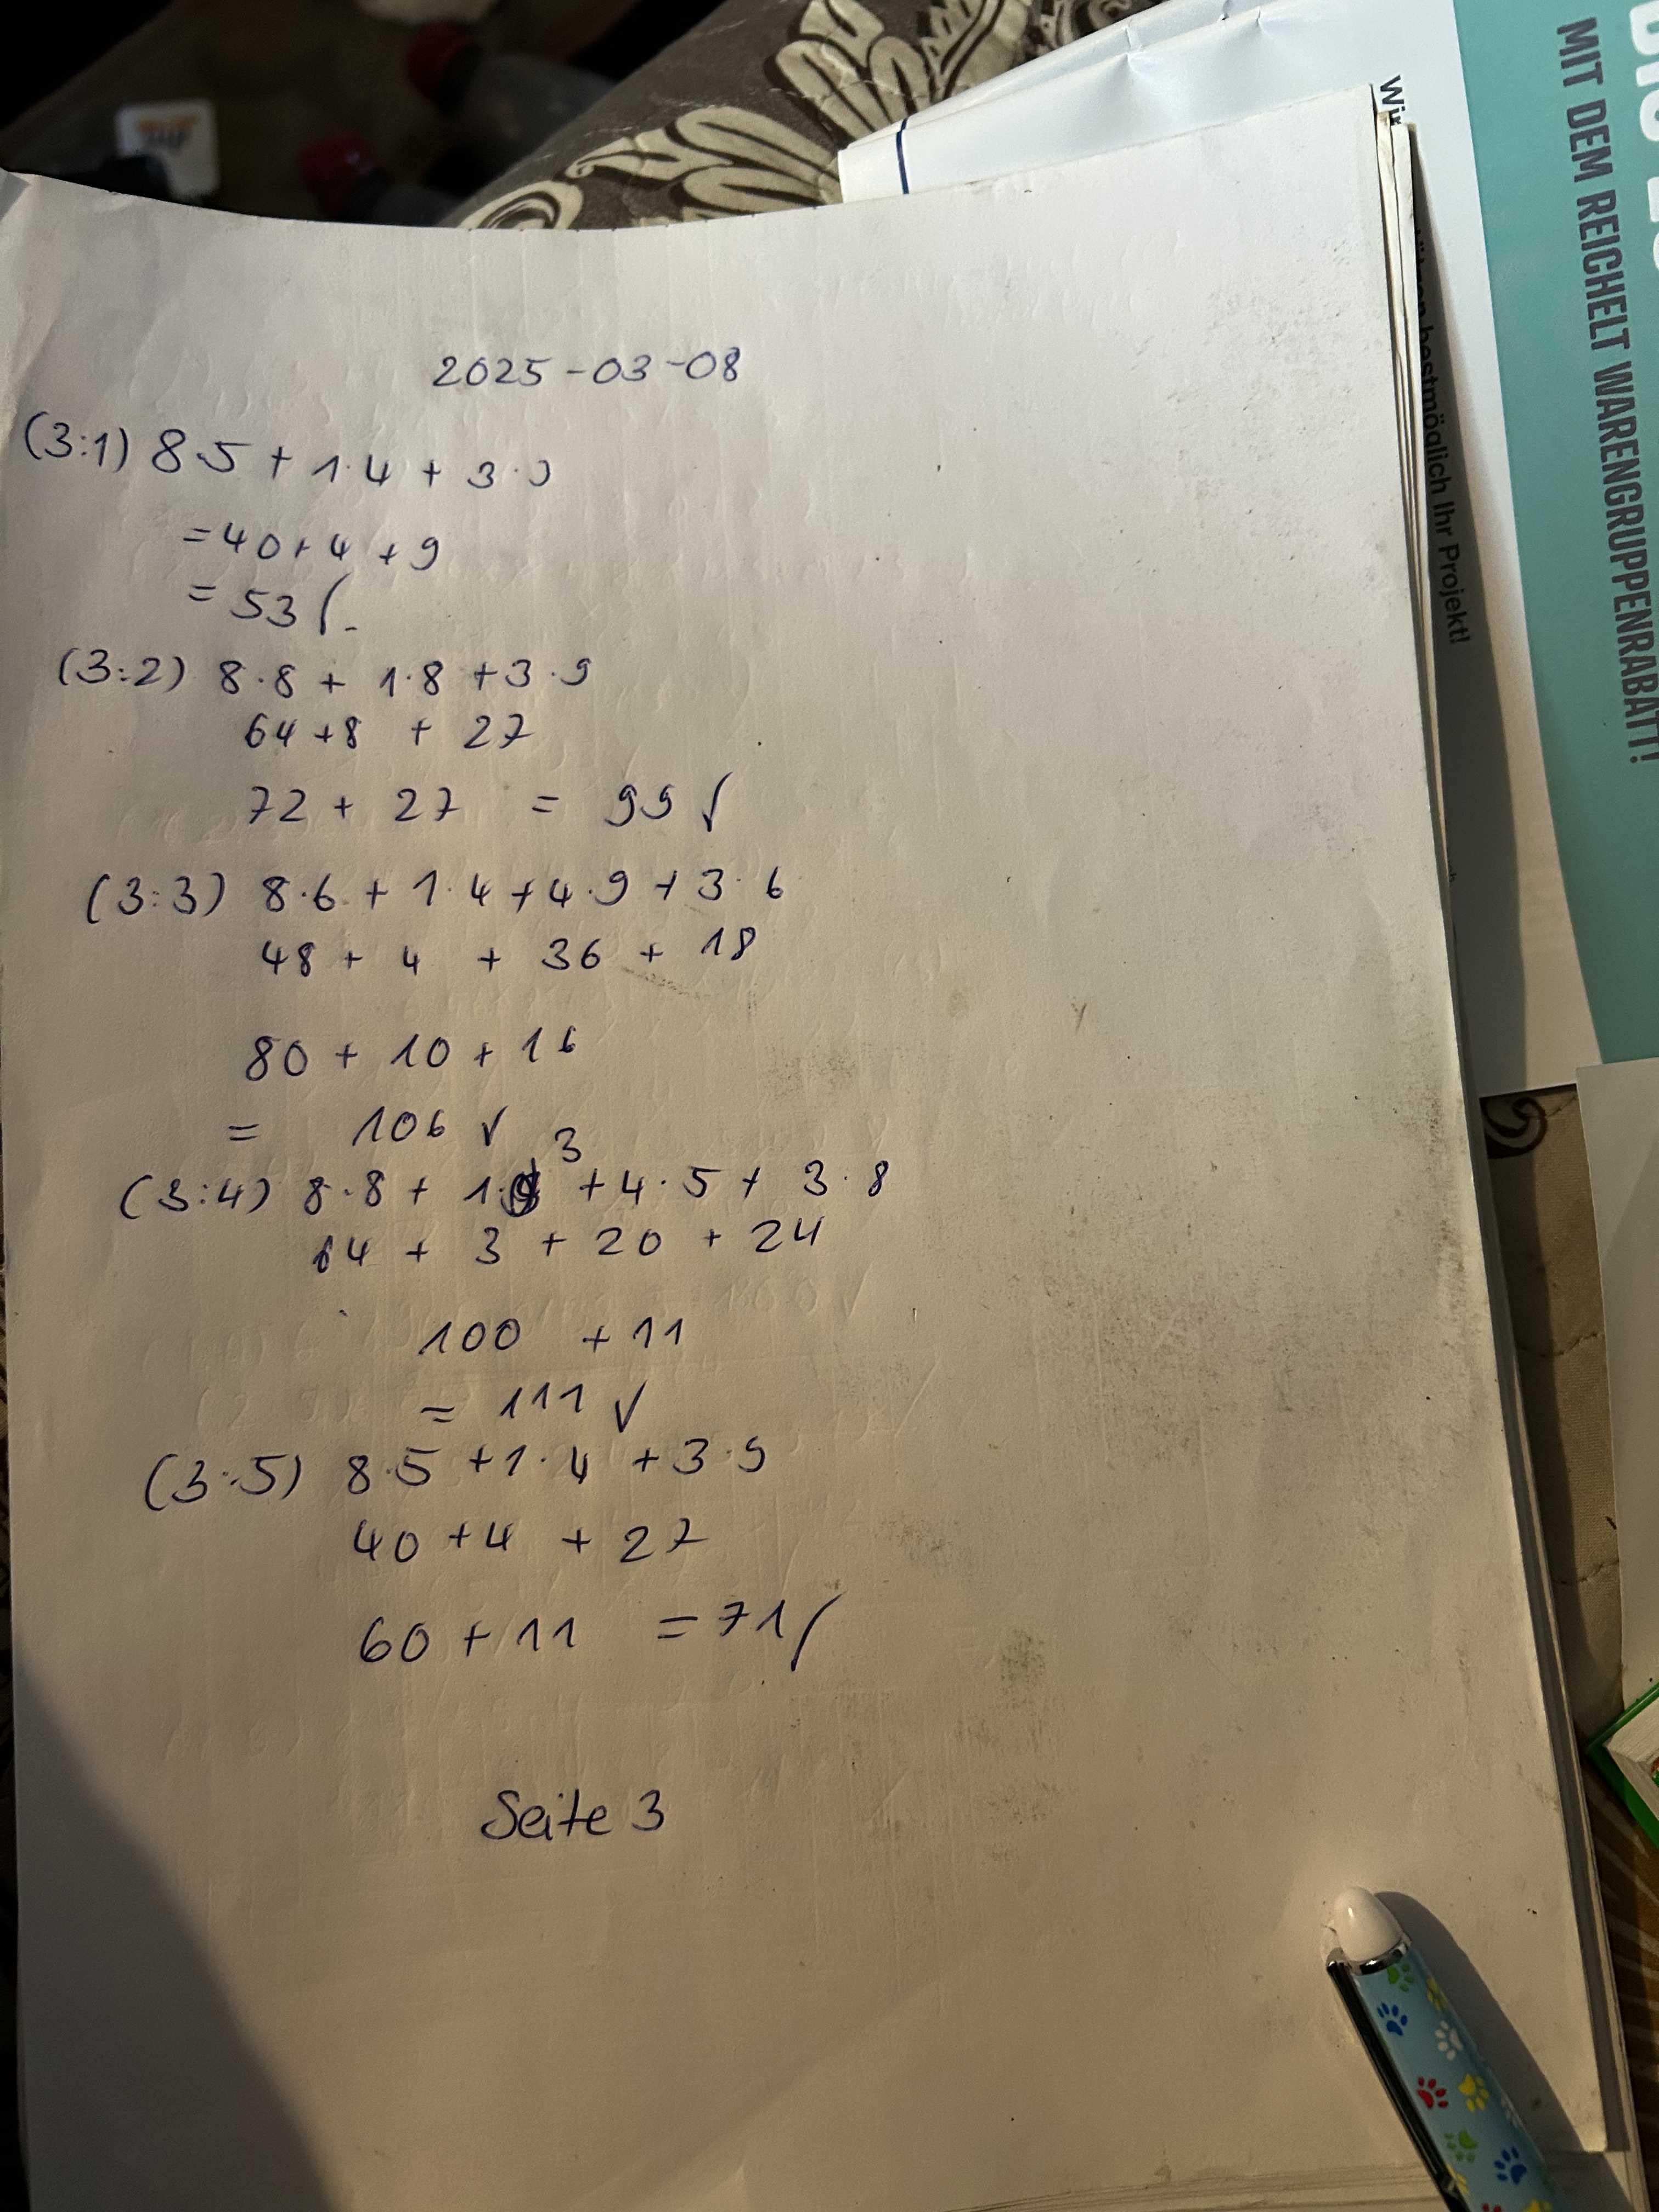 2025-03-08
(3:1) 8·5 + 1·4 + 3·
= 40 + 4 + 9
= 53 ✓
(3:2) 8·8 + 1·8 + 3·9
64 + 8 + 27
72 + 27 = 99 ✓
(3:3) 8·6 + 1·4 + 4·9 + 3·6
48 + 4 + 36 + 18
80 + 10 + 16
= 106 ✓
(3:4) 8·8 + 1·3 + 4·5 + 3·8
64 + 3 + 20 + 24
100 + 11
= 111 ✓
(3:5) 8·5 + 1·4 + 3·9
40 + 4 + 27
60 + 11 = 71 ✓
Seite 3
MIT DEM REICHELT WARENGRUPPENRABATT!
Wir
bestmöglich Ihr Projekt!